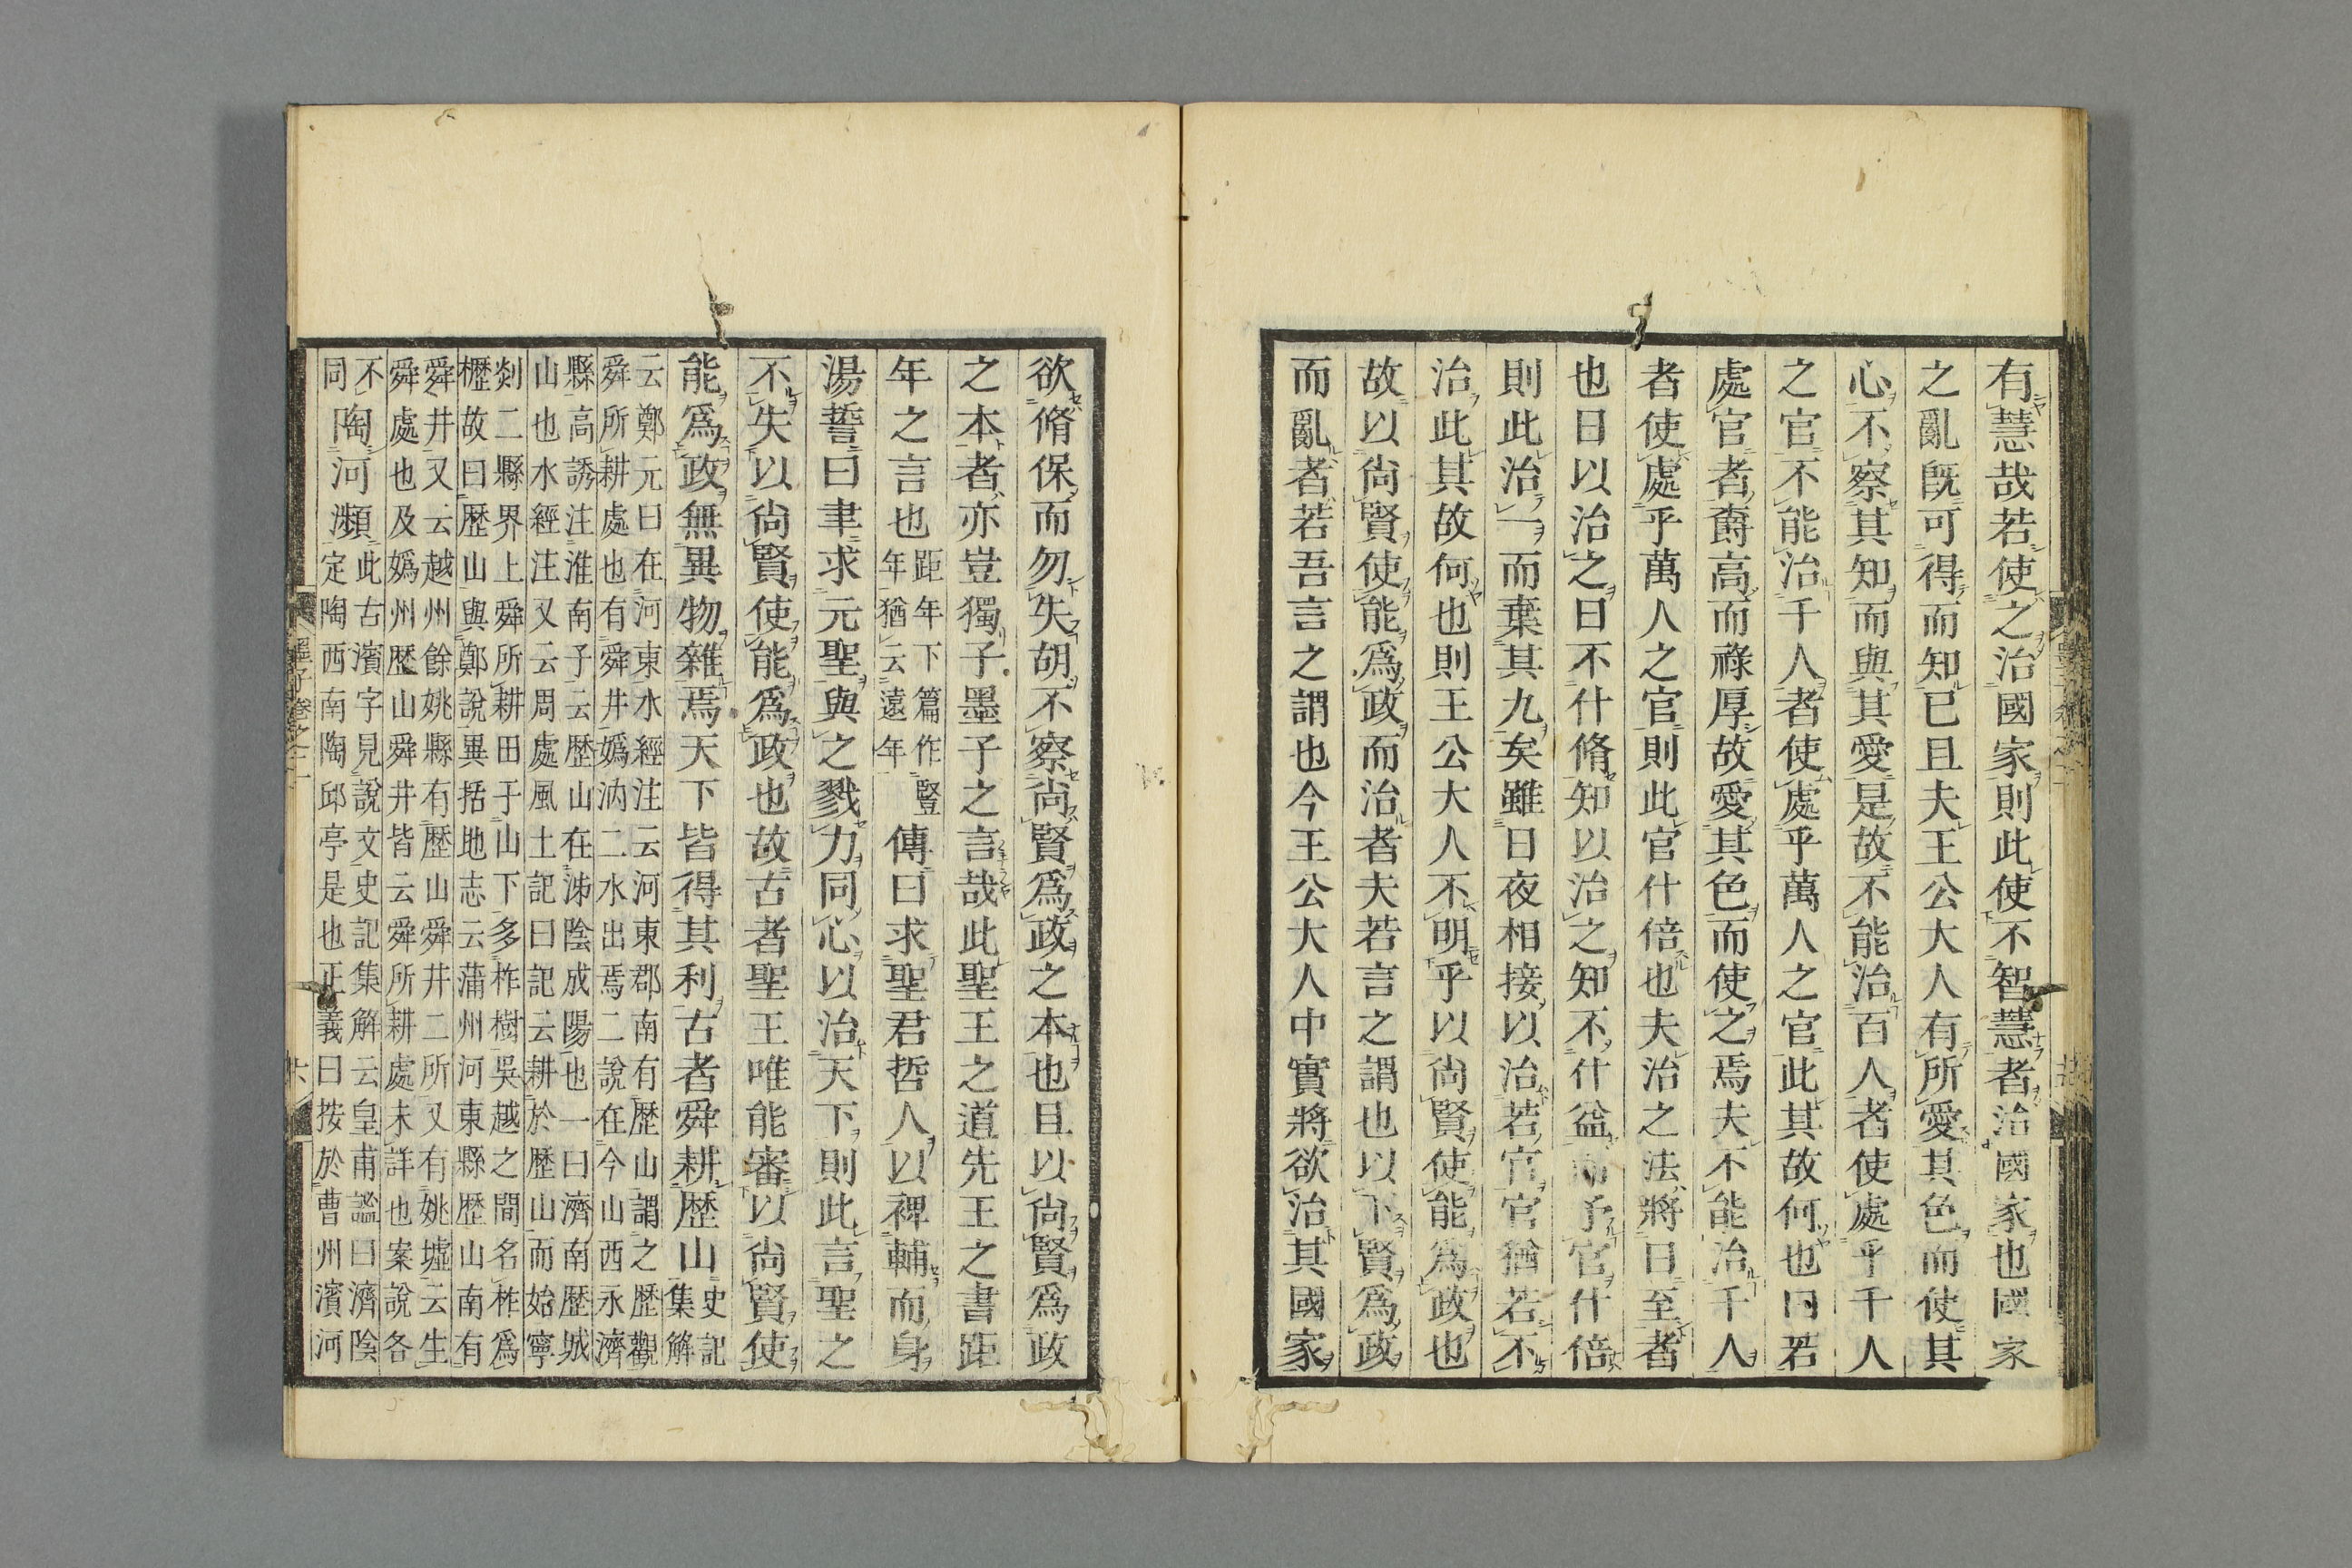 有慧哉若使之治國家則此使不智慧者治國家也國家
之亂既可得而知已且夫王公大人有所愛其色而使其
心不察其知而與其愛是故不能治百人者使處乎千人
之官不能治千人者使處乎萬人之官此其故何也曰若
處官者爵高而祿厚故愛其色而使之焉夫不能治千人
者使處乎萬人之官則此官什倍也夫治之法將日至者
也日以治之日不什脩知以治之知不什益而予官什倍
則此治一而棄其九矣雖日夜相接以治若官官猶若不
治此其故何也則王公大人不明乎以尚賢使能爲政也
故以尚賢使能爲政而治者夫若言之謂也以下賢爲政
而亂者若吾言之謂也今王公大人中實將欲治其國家
欲脩保而勿失胡不察尚賢爲政之本也且以尚賢爲政
之本者亦豈獨子墨子之言哉此聖王之道先王之書距
年之言也距年下篇作豎年猶云遠年傳曰求聖君哲人以裨輔而身
湯誓曰聿求元聖與之戮力同心以治天下則此言聖之
不失以尚賢使能爲政也故古者聖王唯能審以尚賢使
能爲政無異物雜焉天下皆得其利古者舜耕歷山史記集解
云鄭元曰在河東水經注云河東郡南有歷山謂之歷觀
舜所耕處也有舜井嬀汭二水出焉二說在今山西永濟
縣高誘注淮南子云歷山在泲陰成陽也一曰濟南歷城
山也水經注又云周處風土記曰記云耕於歷山而始寧
剡二縣界上舜所耕田于山下多柞樹吳越之間名柞爲
櫪故曰歷山與鄭說異括地志云蒲州河東縣歷山南有
舜井又云越州餘姚縣有歷山舜井二所又有姚墟云生
舜處也及嬀州歷山舜井皆云舜所耕處未詳也案說各
不同陶河瀕此古濱字見說文史記集解云皇甫謐曰濟陰定陶西南陶邱亭是也正義曰按於曹州濱河
墨子卷之二